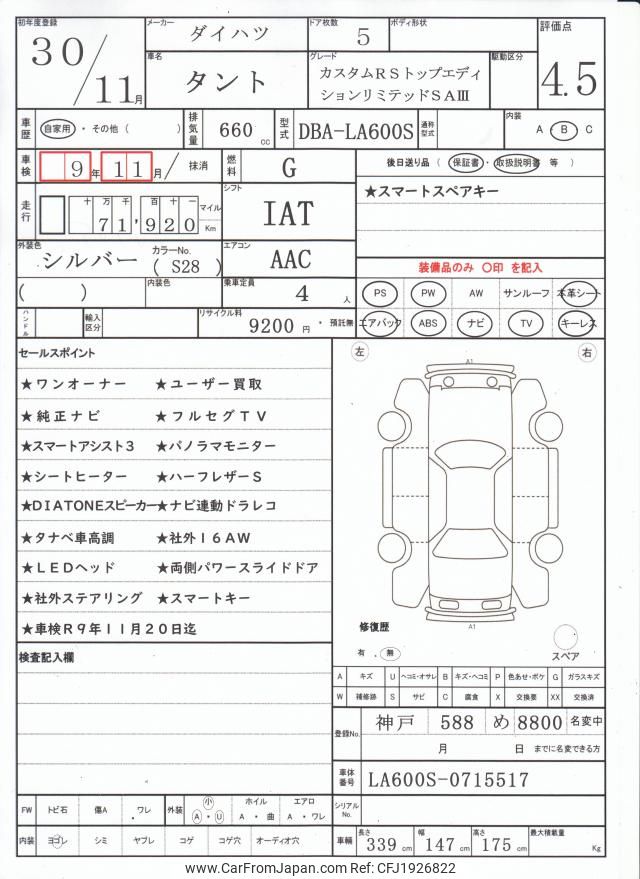 初年度登録
30/11月
メーカー
ダイハツ
ドア枚数
5
ボディ形状
評価点
4.5
車名
タント
グレード
カスタムRSトップエディ
ションリミテッドSAⅢ
駆動区分
車歴
自家用・その他( )
排気量
660 cc
型式
DBA-LA600S
通称型式
内装
A・B C
車検
9年11月/
抹消
燃料
G
後日送り品(保証書・取扱説明書 等)
★スマートスペアキー
走行
十万千百十一
71,920
マイル
Km
シフト
IAT
外装色
シルバー
カラーNo.
(S28)
エアコン
AAC
装備品のみ 〇印 を記入
( )
内装色
乗車定員
4 人
PS PW AW サンルーフ 本革シート
ハンドル
輸入区分
リサイクル料
9200 円・預託無
エアバック ABS ナビ TV キーレス
セールスポイント
左 右
A1
★ワンオーナー ★ユーザー買取
★純正ナビ ★フルセグTV
★スマートアシスト3 ★パノラマモニター
★シートヒーター ★ハーフレザーS
★DIATONEスピーカー★ナビ連動ドラレコ
★タナベ車高調 ★社外16AW
★LEDヘッド ★両側パワースライドドア
★社外ステアリング ★スマートキー
★車検R9年11月20日迄
修復歴
有.無
A1
スペア
検査記入欄
A キズ U ヘコミ・オサレ B キズ・ヘコミ P 色あせ・ボケ G ガラスキズ
W 補修跡 S サビ C 腐食 X 交換要 XX 交換済
登録No.
神戸 588 め 8800 名変中
月 日 までに名変できる方
車体番号
LA600S-0715517
FW トビ石 傷A ワレ 外装 小 A・U ホイル A・曲 エアロ A・ワレ
シリアルNo.
内装 ヨゴレ シミ ヤブレ コゲ コゲ穴 オーディオ穴
車輛 長さ 339cm 幅 147cm 高さ 175cm 最大積載量 Kg
www.CarFromJapan.com Ref: CFJ1926822